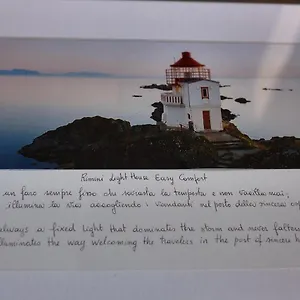 Rimini Light House Easy Comfort
un faro sempre fisso che sovrasta la tempesta e non vacilla mai,
illumina la via accogliendo i viandanti nel porto della sincera
always a fixed light that dominates the storm and never falter
illuminates the way welcoming the travelers in the port of sincere